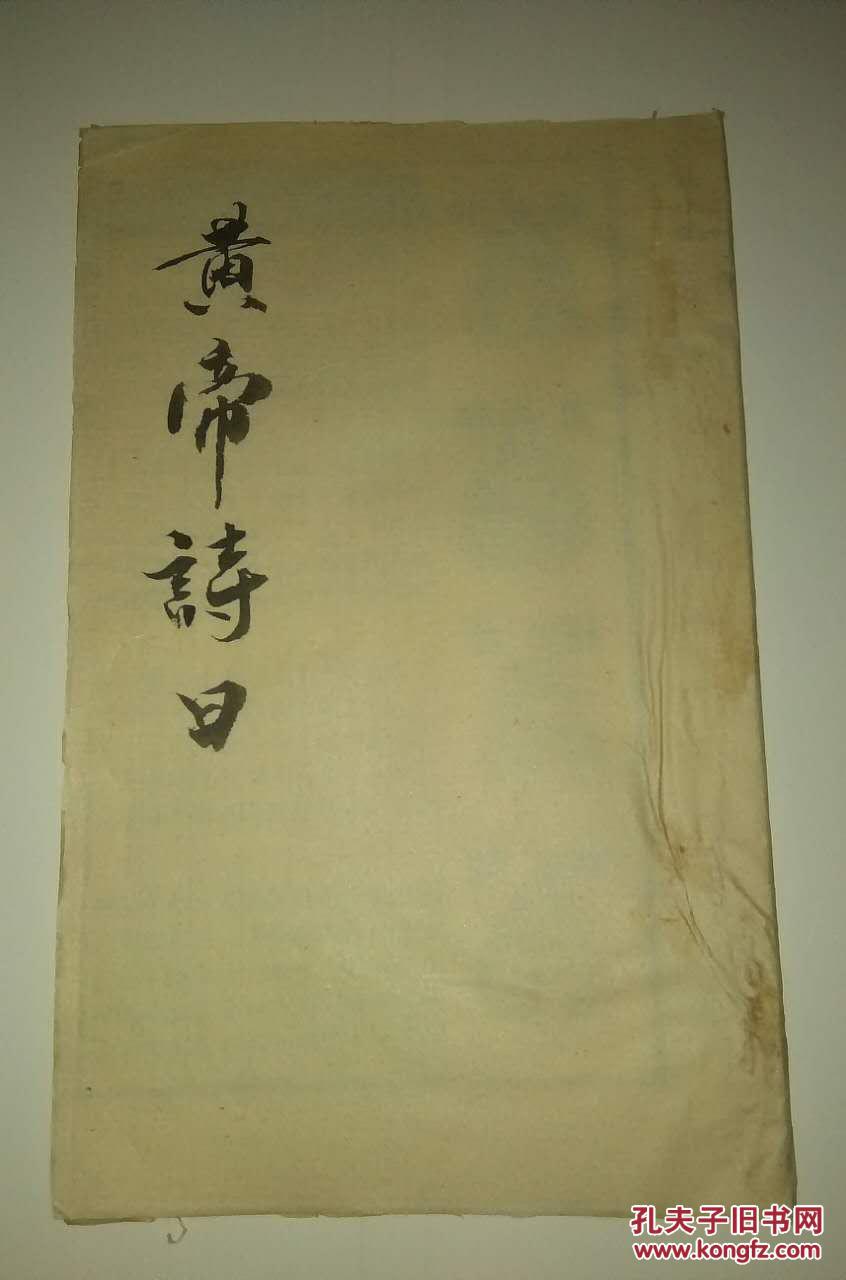 黄帝詩曰
孔夫子旧书网
www.kongfz.com